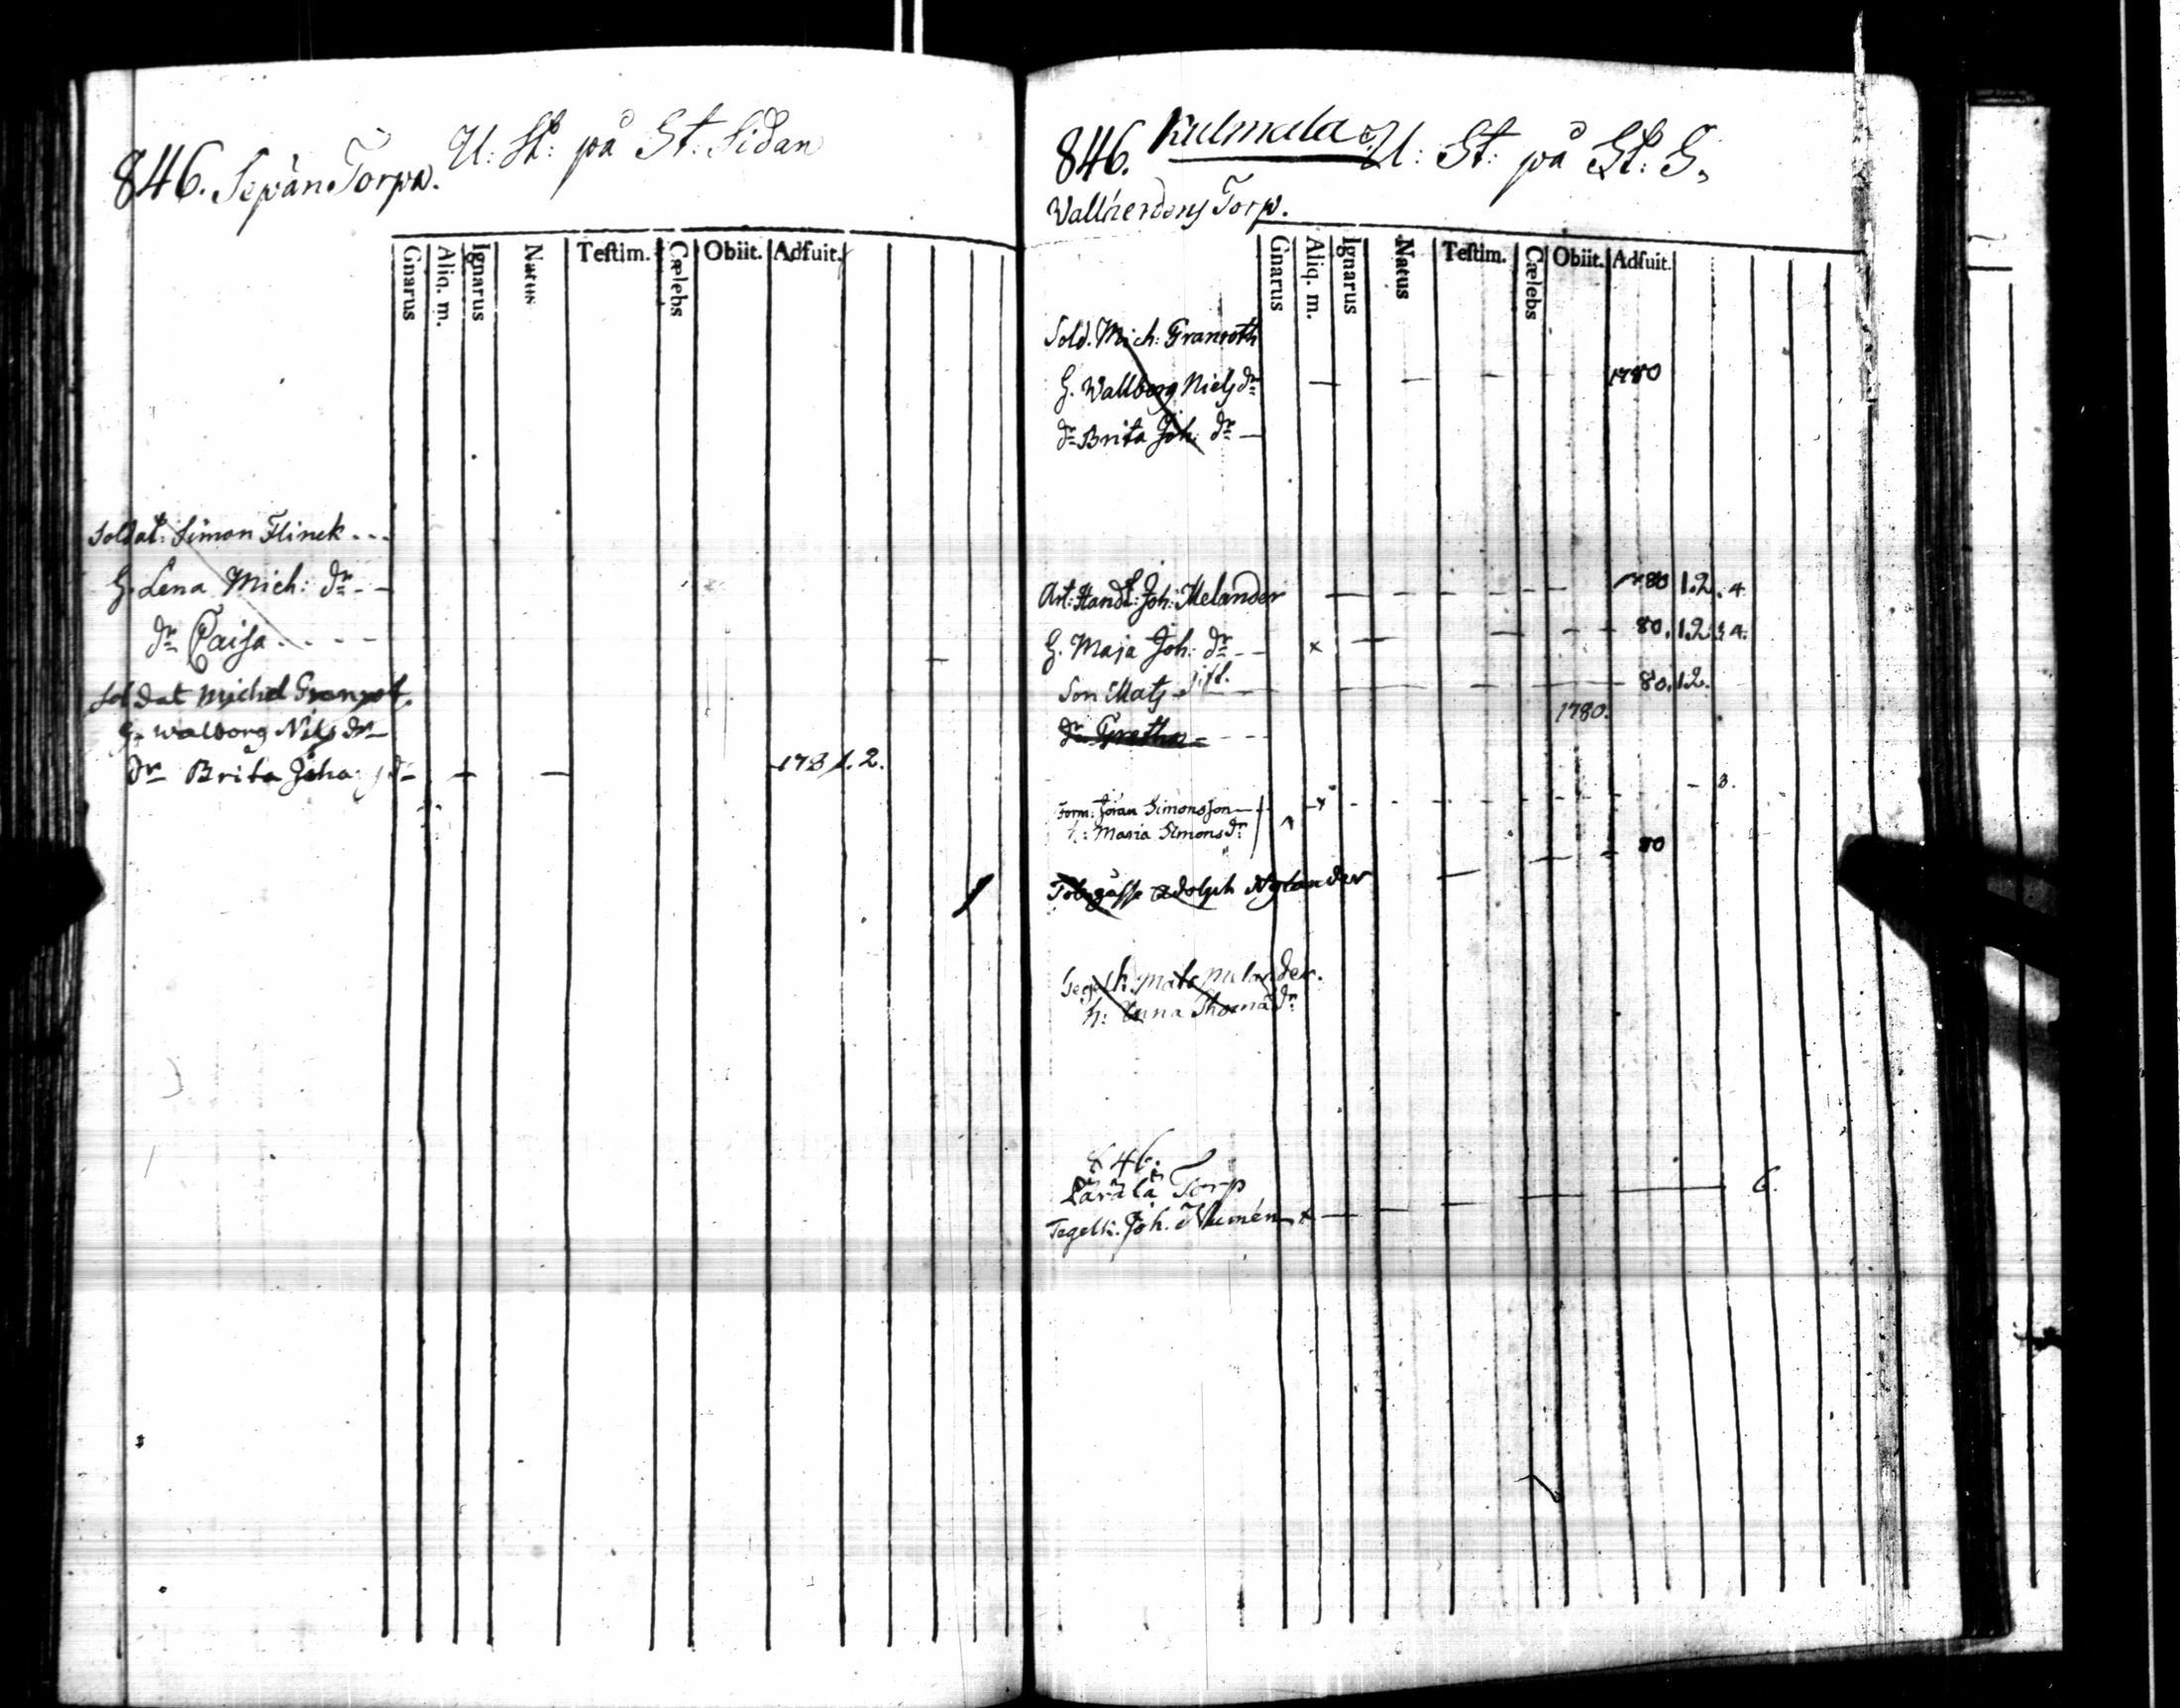 846. Sepän Torpa. U: St: på St: Sidan
Gnarus Aliq. m. Ignarus Natus Testim. Cælebs Obiit. Adfuit.
Soldat: Simon Flinck
H. Lena Mich: dr
dr Caisa
Soldat Michel Granrot
H. Walborg Nils dr
dr Brita Joha dr 1781. 2.
846. Kulmala U: St: på St: S.
Vallherdens Torp.
Gnarus Aliq. m. Ignarus Natus Testim. Cælebs Obiit. Adfuit.
Sold. Mich: Granroth
H. Wallborg Niels dr 1780
dr Brita Joh: dr
Art: Handl: Joh: Melander 1780 1.2. 4.
H. Maja Joh: dr x 80. 1.2. 4.
Son Mats gift. 80. 12.
dr Gretha 1780.
Torm: Jöran Simonsson 3.
h: Maria Simons dr
80
Adolph Nylander
h: Mats Melander.
h: Anna Thoma dr
846.
Torp 6.
Tegelh: Joh.